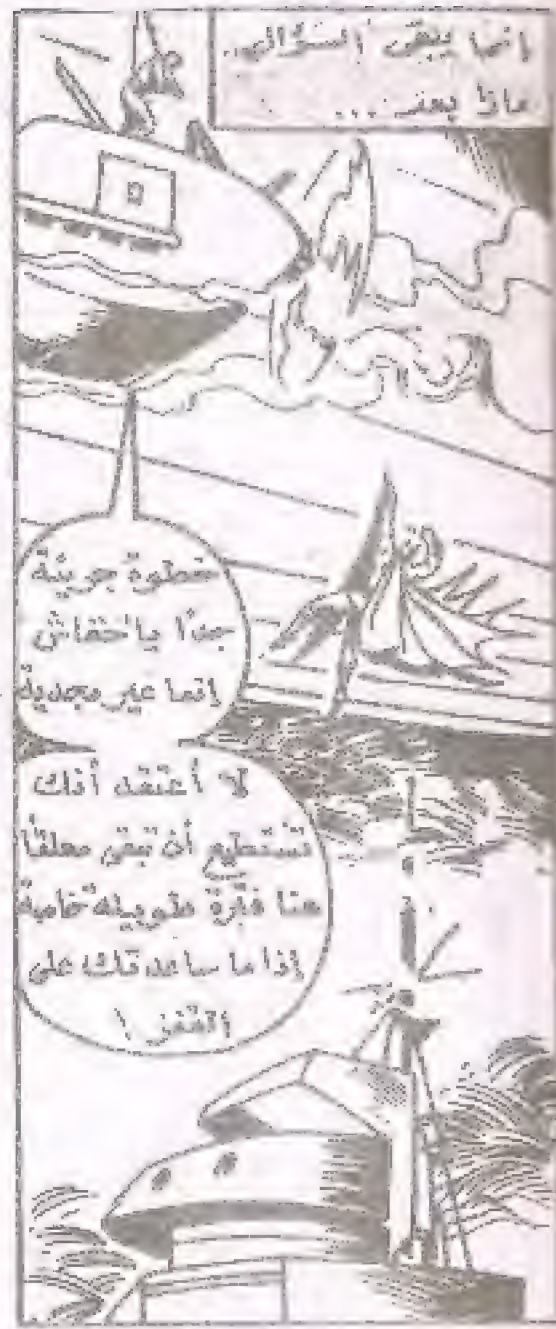 إنما يبقى السؤال..
ماذا بعد...
خطوة جريئة
جدًا يا خفاش
إنما غير مجدية
لا أعتقد أنك
تستطيع أن تبقى معلقاً
هنا فترة طويلة خاصة
إذا ما ساعدتك على
القفز!